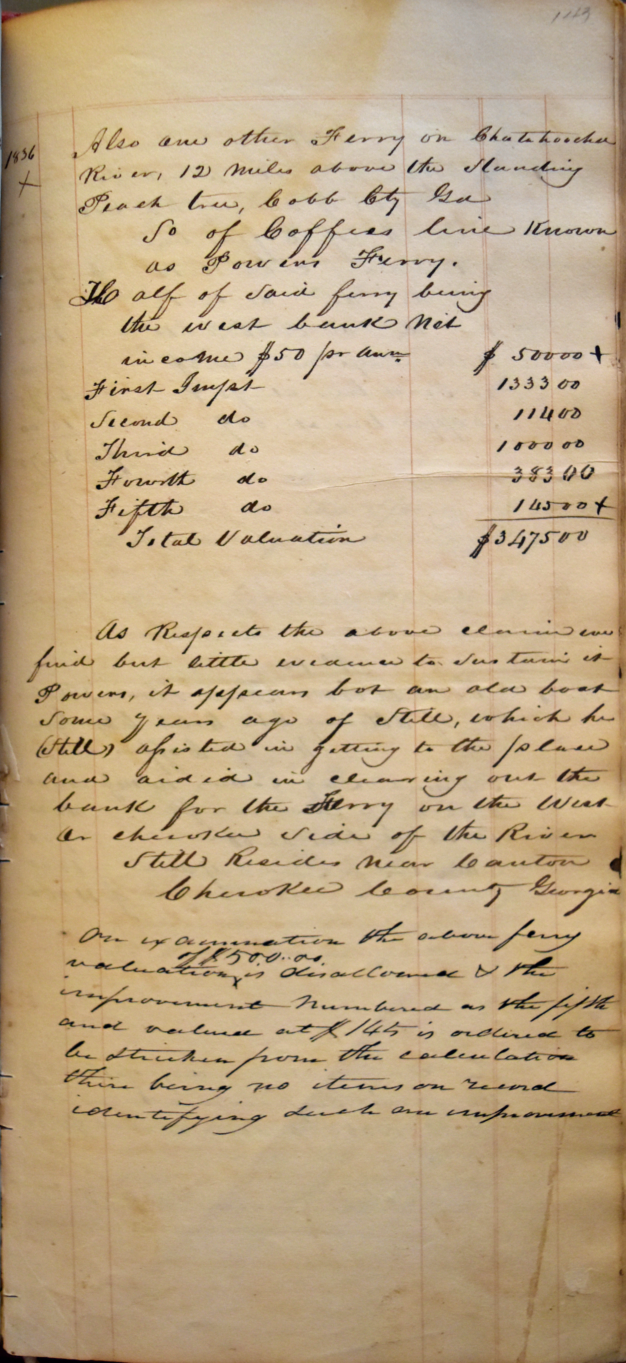 1113
1836
+
Also one other Ferry on Chatahoocha
River, 12 Miles above the Standing
Peach tree, Cobb Cty Ga
So of Coffees line Known
as Powers Ferry.
Half of Said ferry being
the west bank Net
income $50 pr ann $ 500 00 +
First Impt 1333 00
Second do 114 00
Third do 1000 00
Fourth do 383 00
Fifth do 145 00 +
Total Valuation $3475 00
As Respects the above claim we
find but little evidence to Sustain it
Powers, it appears bot an old boat
Some years ago of Still, which he
(Still) assisted in getting to the place
and aided in clearing out the
bank for the Ferry on the West
or cherokee Side of the River
Still Resides near Canton
Cherokee County Georgia
On examination the above ferry
of $500.00
valuation x is disallowed & the
improvement Numbered as the fifth
and valued at $145 is ordered to
be stricken from the calculation
there being no items on record
identifying such an improvement